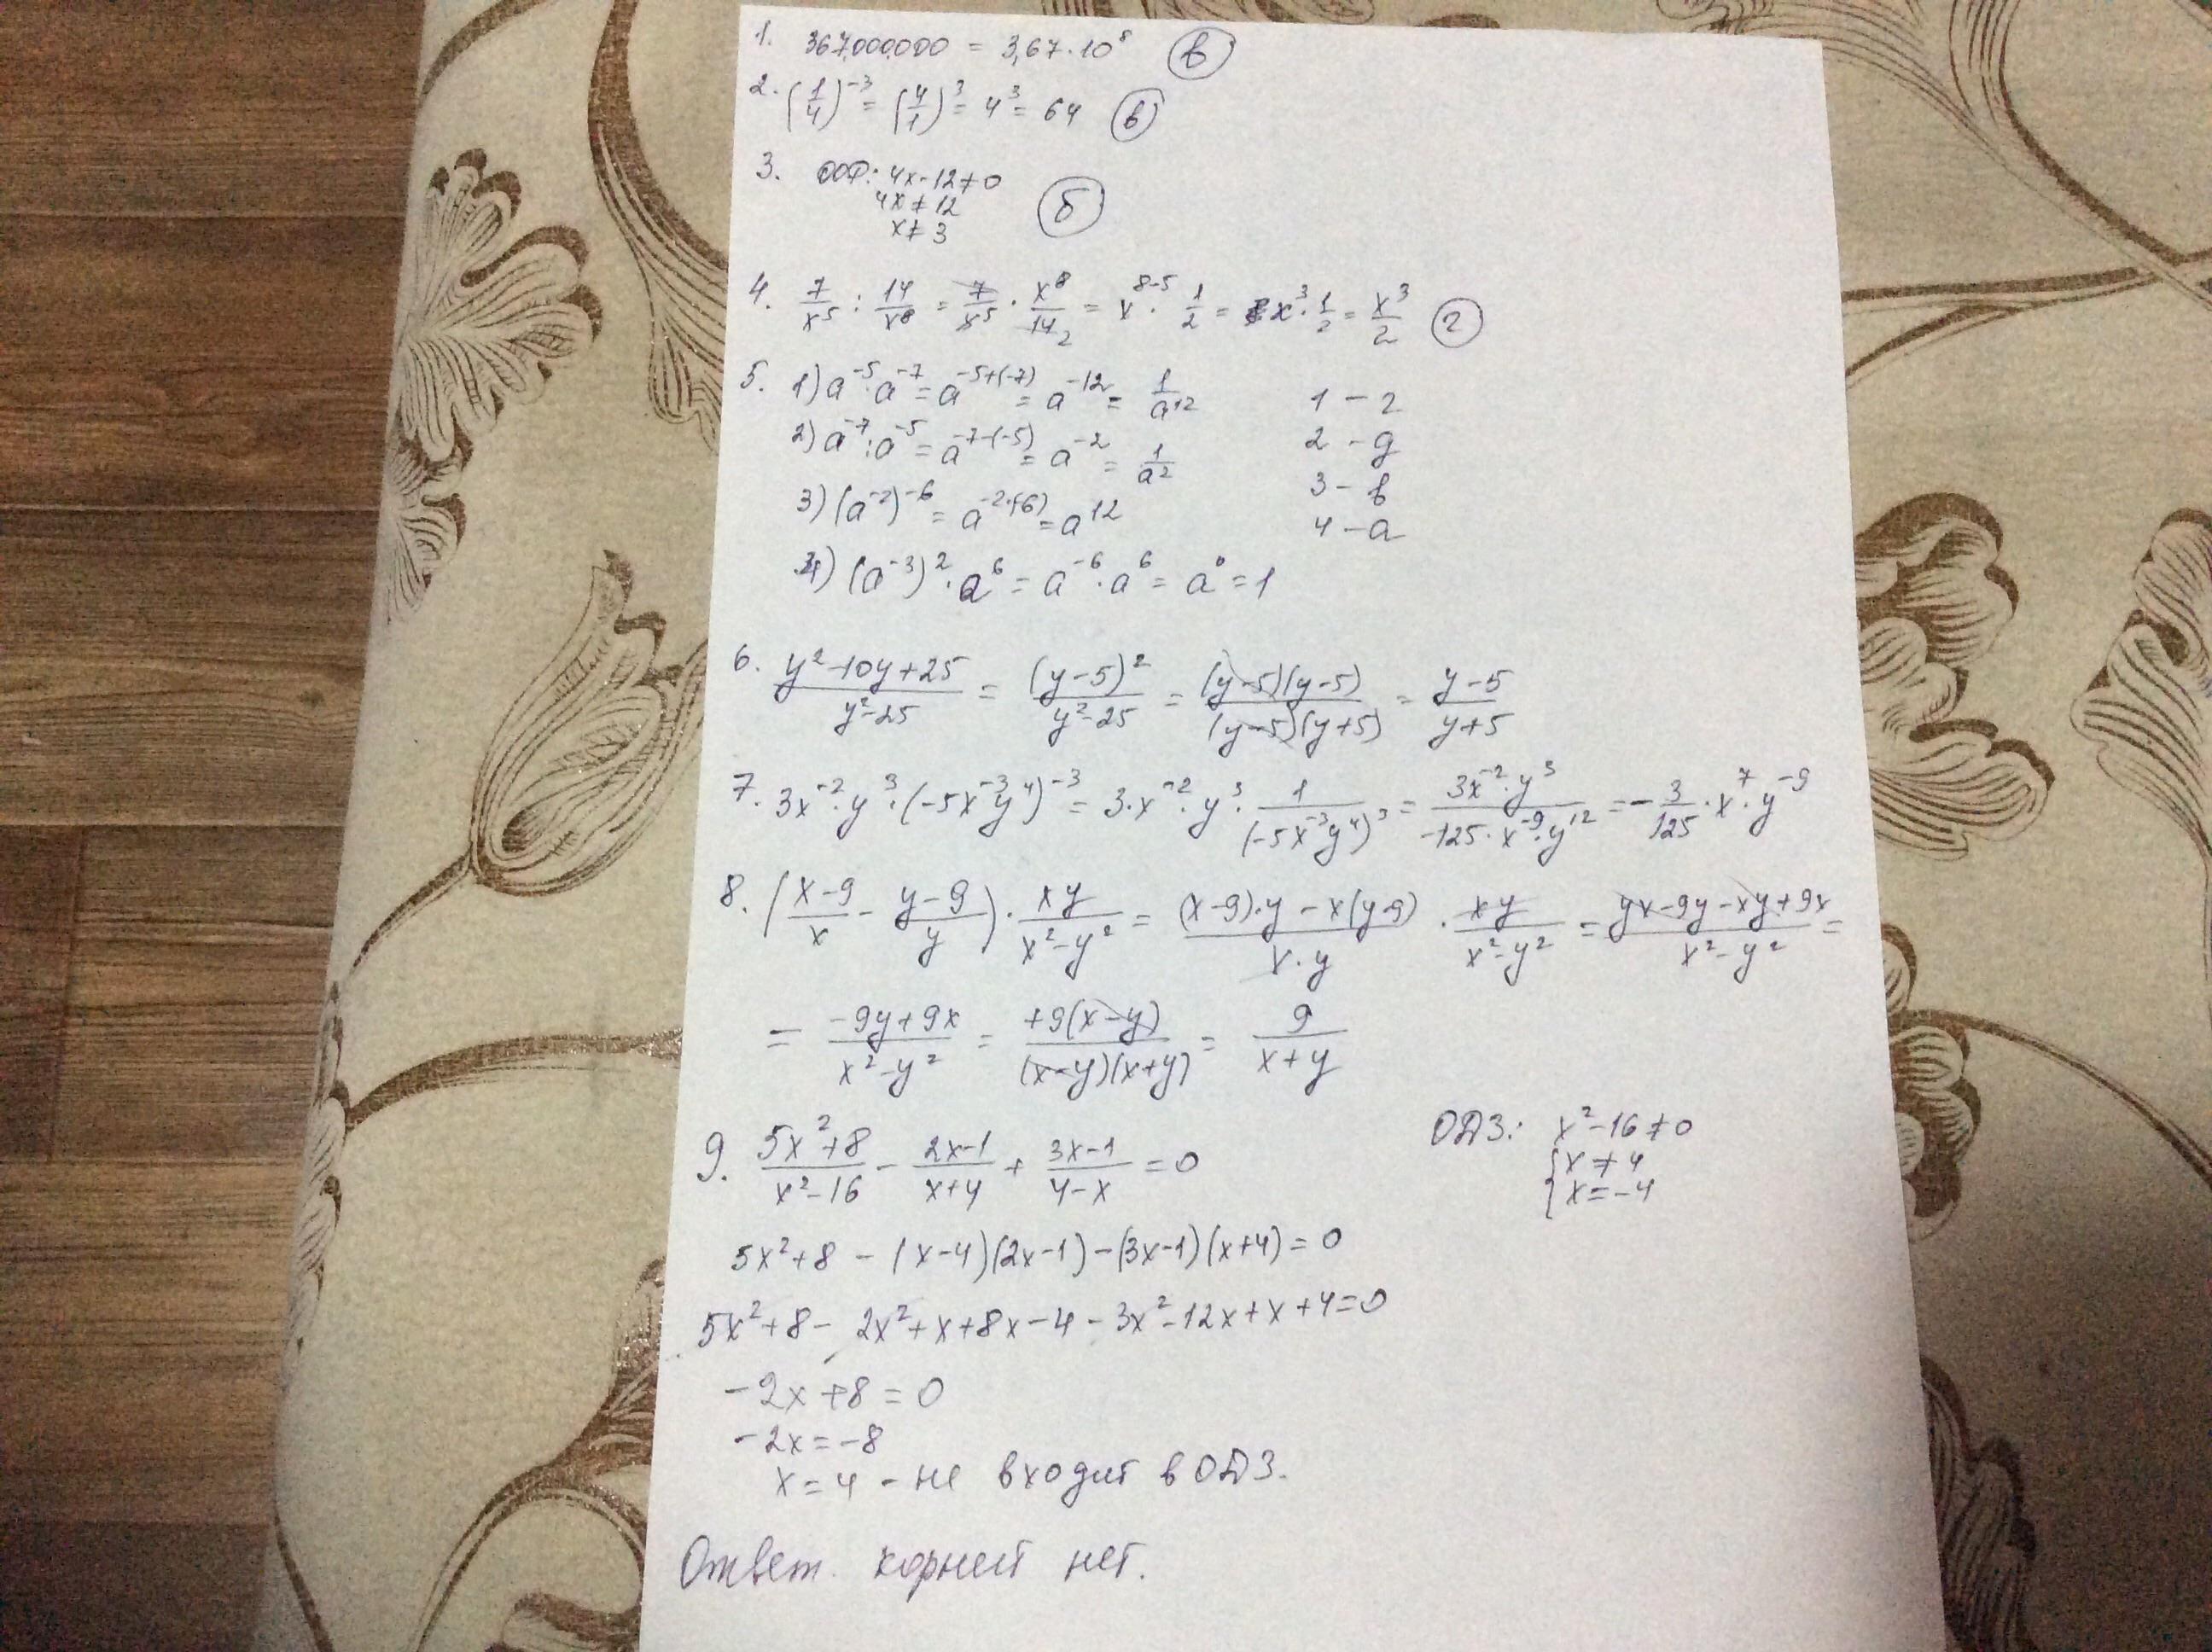 1. 367,000,000 = 3,67·10⁸ (в)
2. (1/4)⁻³ = (4/1)³ = 4³ = 64 (в)
3. ООФ: 4x-12≠0
4x≠12 (б)
x≠3
4. 7/x⁵ : 14/x⁸ = 7/x⁵ · x⁸/14 2 = x⁸⁻⁵ · 1/2 = x³·1/2 = x³/2 (г)
5. 1) a⁻⁵·a⁻⁷ = a⁻⁵⁺⁽⁻⁷⁾ = a⁻¹² = 1/a¹² 1 – г
2) a⁻⁷:a⁻⁵ = a⁻⁷⁻⁽⁻⁵⁾ = a⁻² = 1/a² 2 – д
3) (a⁻²)⁻⁶ = a^(-2·(6) = a¹² 3 – в
4 – а
4) (a⁻³)²·a⁶ = a⁻⁶·a⁶ = a⁰ = 1
6. (y²-10y+25)/(y²-25) = (y-5)²/(y²-25) = (y-5)(y-5)/(y-5)(y+5) = (y-5)/(y+5)
7. 3x⁻²·y³·(-5x⁻³y⁴)⁻³ = 3·x⁻²·y³·1/(-5x⁻³y⁴)³ = 3x⁻²·y³/-125·x⁻⁹·y¹² = -3/125·x⁷·y⁻⁹
8. ((x-9)/x - (y-9)/y)·xy/(x²-y²) = ((x-9)·y-x(y-9))/(x·y) · xy/(x²-y²) = (yx-9y-xy+9x)/(x²-y²) =
= (-9y+9x)/(x²-y²) = +9(x-y)/(x-y)(x+y) = 9/(x+y)
9. (5x²+8)/(x²-16) - (2x-1)/(x+4) + (3x-1)/(4-x) = 0
ОДЗ: x²-16≠0
{x≠4
{x=-4
5x²+8 - (x-4)(2x-1) - (3x-1)(x+4) = 0
5x²+8 - 2x²+x+8x-4-3x²-12x+x+4=0
-2x+8=0
-2x=-8
x=4 - не входит в ОДЗ.
Ответ. корней нет.